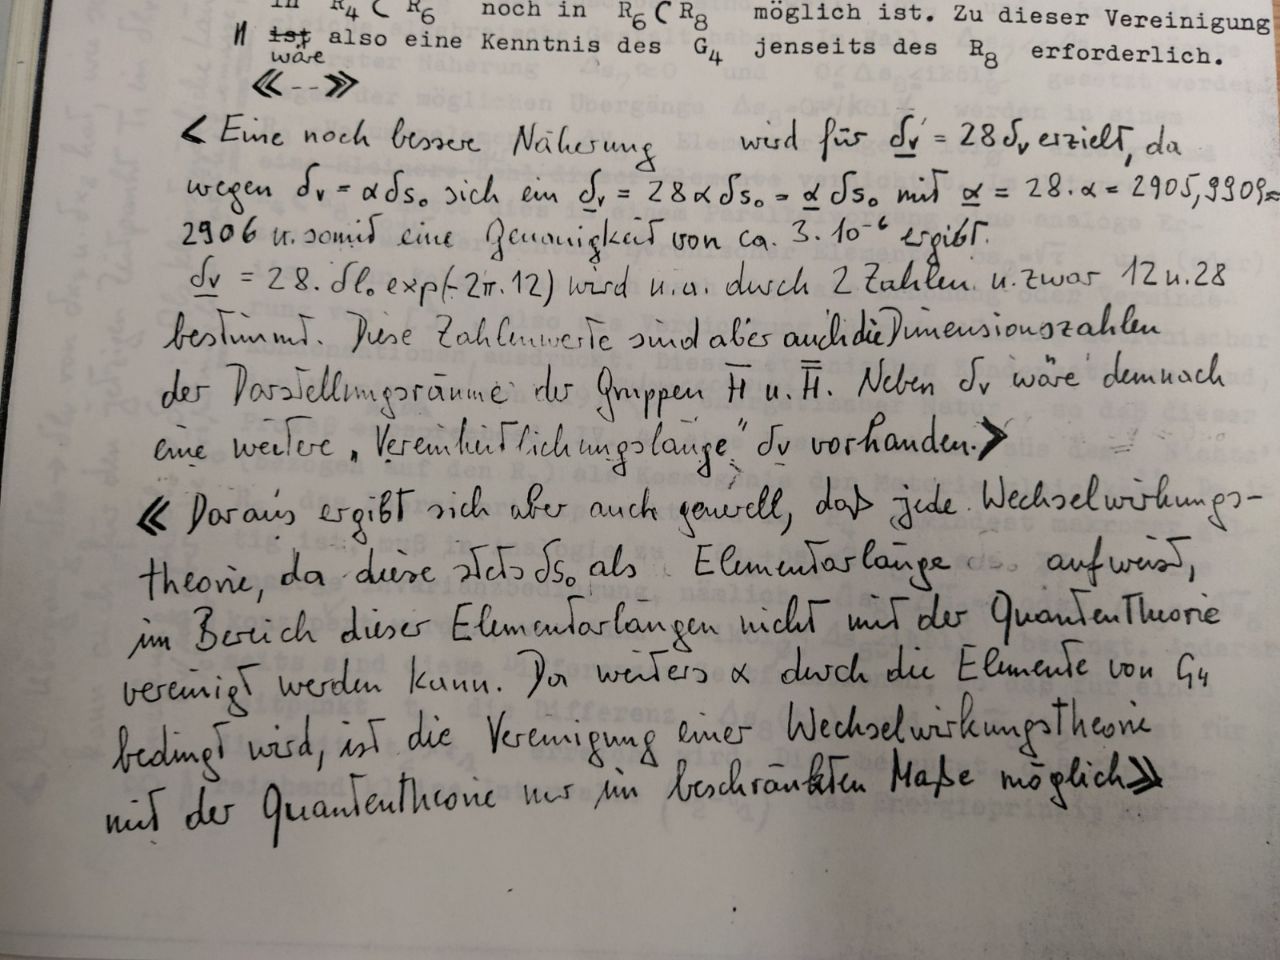 in R₄ ⊂ R₆ noch in R₆ ⊂ R₈ möglich ist. Zu dieser Vereinigung
ist also eine Kenntnis des G₄ jenseits des R₈ erforderlich.
wäre
≪--≫
< Eine noch bessere Näherung wird für δ̲v̲' = 28 δv erzielt, da
wegen δv = α δs₀ sich ein δ̲v̲ = 28 α δs₀ = α̲ δs₀ mit α̲ = 28 · α = 2905,9909 ≈
2906 u. somit eine Genauigkeit von ca. 3·10⁻⁶ ergibt.
δ̲v̲ = 28 · δl₀ exp(-2π·12) wird u.a. durch 2 Zahlen u. zwar 12 u. 28
bestimmt. Diese Zahlenwerte sind aber auch die Dimensionszahlen
der Darstellungsräume der Gruppen H̄ u. H̿. Neben δv wäre demnach
eine weitere „Vereinheitlichungslänge" δv vorhanden. >
≪ Daraus ergibt sich aber auch generell, daß jede Wechselwirkungs-
theorie, da diese stets δs₀ als Elementarlänge aufweist,
im Bereich dieser Elementarlängen nicht mit der Quantentheorie
vereinigt werden kann. Da weiters α durch die Elemente von G₄
bedingt wird, ist die Vereinigung einer Wechselwirkungstheorie
mit der Quantentheorie nur im beschränkten Maße möglich ≫